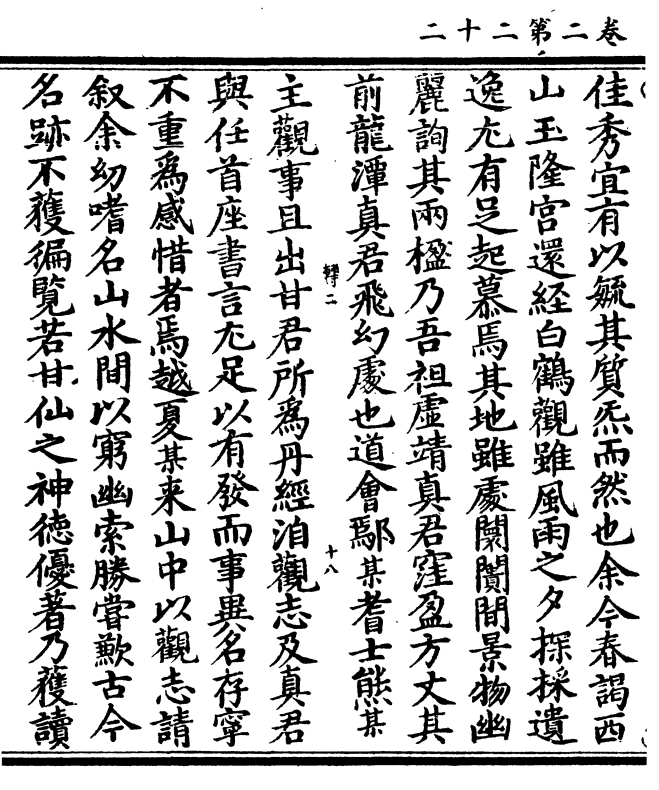 卷二第二十二
佳秀宜有以毓其質炁而然也余今春謁西
山玉隆宮還経白鶴觀雖風雨之夕探採遺
逸尤有足起慕焉其地雖處闤闠間景物幽
麗詢其兩楹乃吾祖虛靖真君窪盈方丈其
前龍潭真君飛幻處也道會鄢某耆士熊某
轉二
十八
主觀事且出甘君所為丹經洎觀志及真君
與任首座書言尤足以有發而事異名存寧
不重為感惜者焉越夏某来山中以觀志請
叙余幼嗜名山水間以窮幽索勝嘗歉古今
名跡不獲徧覽若甘仙之神德優著乃獲讀